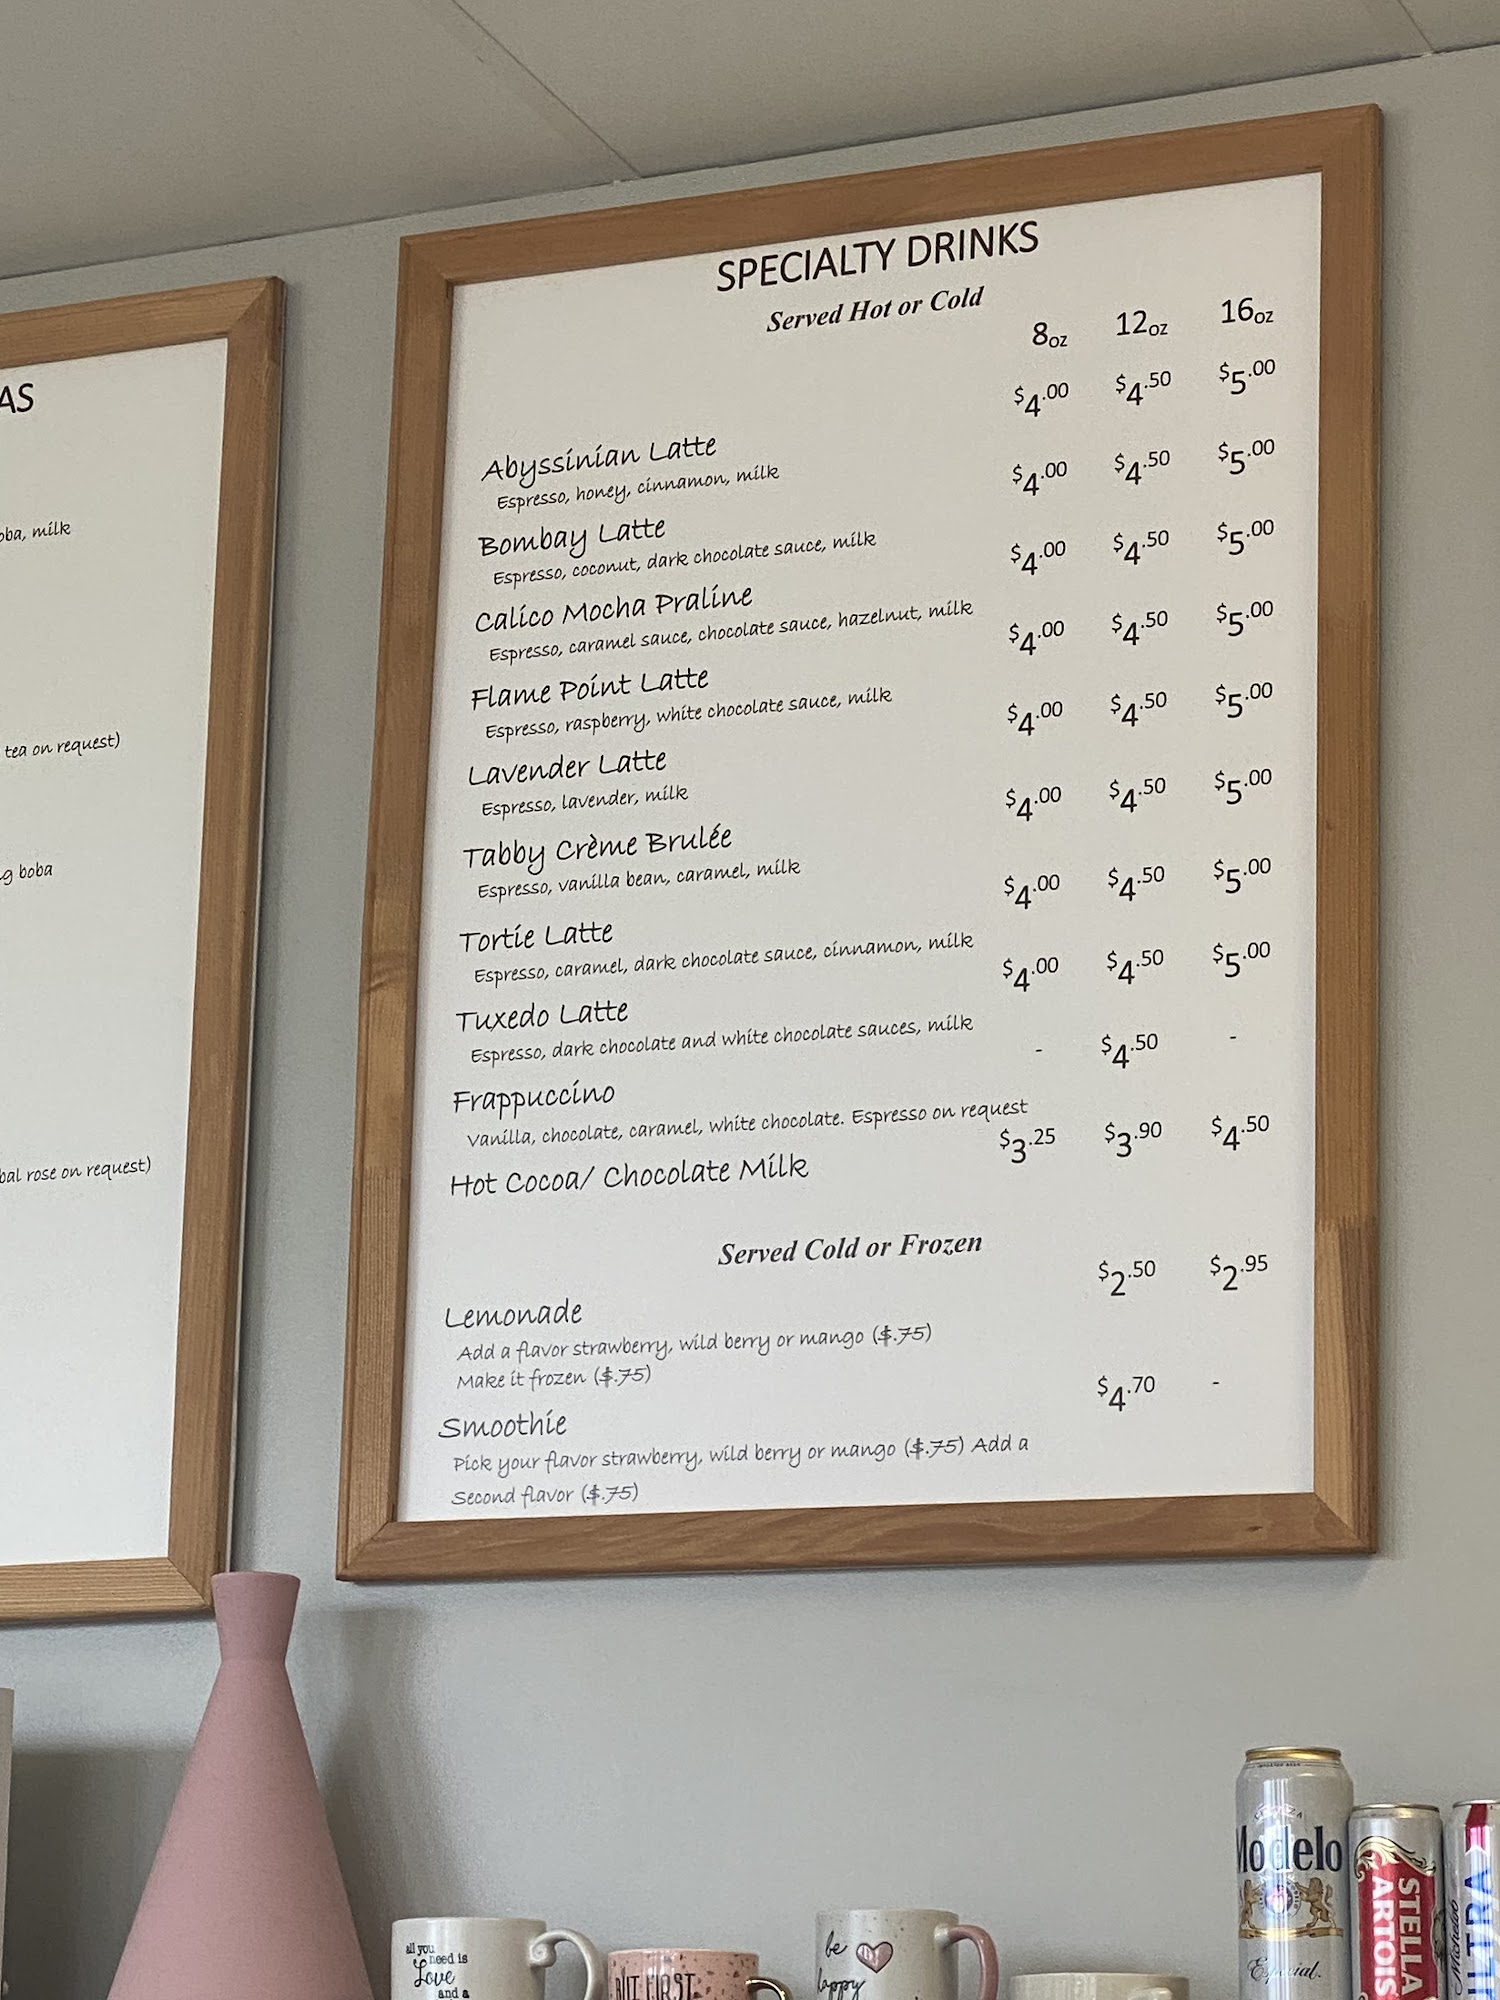 AS
oba, milk
tea on request)
g boba
bal rose on request)
SPECIALTY DRINKS
Served Hot or Cold
8oz 12oz 16oz
$4.00 $4.50 $5.00
Abyssinian Latte
Espresso, honey, cinnamon, milk
$4.00 $4.50 $5.00
Bombay Latte
Espresso, coconut, dark chocolate sauce, milk
$4.00 $4.50 $5.00
Calico Mocha Praline
Espresso, caramel sauce, chocolate sauce, hazelnut, milk
$4.00 $4.50 $5.00
Flame Point Latte
Espresso, raspberry, white chocolate sauce, milk
$4.00 $4.50 $5.00
Lavender Latte
Espresso, lavender, milk
$4.00 $4.50 $5.00
Tabby Crème Brulée
Espresso, vanilla bean, caramel, milk
$4.00 $4.50 $5.00
Tortie Latte
Espresso, caramel, dark chocolate sauce, cinnamon, milk
$4.00 $4.50 $5.00
Tuxedo Latte
Espresso, dark chocolate and white chocolate sauces, milk
- $4.50 -
Frappuccino
Vanilla, chocolate, caramel, white chocolate. Espresso on request
$3.25 $3.90 $4.50
Hot Cocoa/ Chocolate Milk
Served Cold or Frozen
$2.50 $2.95
Lemonade
Add a flavor strawberry, wild berry or mango ($.75)
Make it frozen ($.75)
$4.70 -
Smoothie
Pick your flavor strawberry, wild berry or mango ($.75) Add a
Second flavor ($.75)
all you
need is
Love
and a
BUT FIRST
be
happy
Modelo
Especial.
STELLA
ARTOIS
Michelob
ULTRA